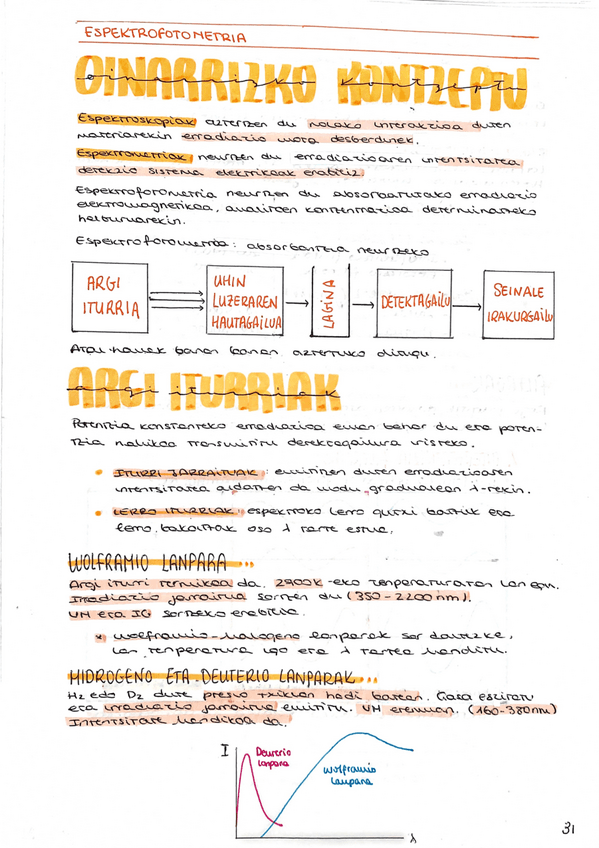 ESPEKTROFOTOMETRIA
OINARRIZKO KONTZEPTU
oinarrizko kontzeptu
Espektroskopiak aztertzen du nolako interakzioa duten
materiarekin erradiazio mota desberdinek.
Espektrometriak neurtzen du erradiazioaren intentsitatea
detekzio sistema elektrikoak erabiliz.
Espektrofotometria neurtzen du absorbatutako erradiazio
elektromagnetikoa, analitoen kontzentrazioa determinatzeko
helburuarekin.
Espektrofotometria: absorbantzia neurtzeko
ARGI
ITURRIA
UHIN
LUZERAREN
HAUTAGAILUA
LAGINA
DETEKTAGAILU
SEINALE
IRAKURGAILU
Atal hauek banan banan aztertuko ditugu.
ARGI ITURRIAK
argi iturriak
Potentzia konstanteko erradiazioa eman behar du eta poten-
tzia nahikoa transmititu detektagailura iristeko.
• ITURRI JARRAITUAK: emititzen duten erradiazioaren
intentsitatea aldatzen da modu gradualean λ-rekin.
• LERRO ITURRIAK: espektroko lerro gutxi batzuk eta
lerro bakoitzak oso λ tarte estua.
WOLFRAMIO LANPARA...
Argi iturri termikoa da. 2900K-eko tenperaturatan lan egin.
Irradiazio jarraitua sortzen du (350-2200 nm).
UM eta IG sortzeko erabilia.
* wolframio-halogeno lanparak ser daitezke,
lan tenperatura igo eta λ tartea handitu.
HIDROGENO ETA DEUTERIO LANPARAK...
H2 edo D2 dute presio txikian hodi batean. Gasa eszitatu
eta irradiazio jarraitua emititu. UM eremuan. (160-380nm)
Intentsitate handikoa da.
I
Deuterio
lanpara
Wolframio
Lanpara
λ
31